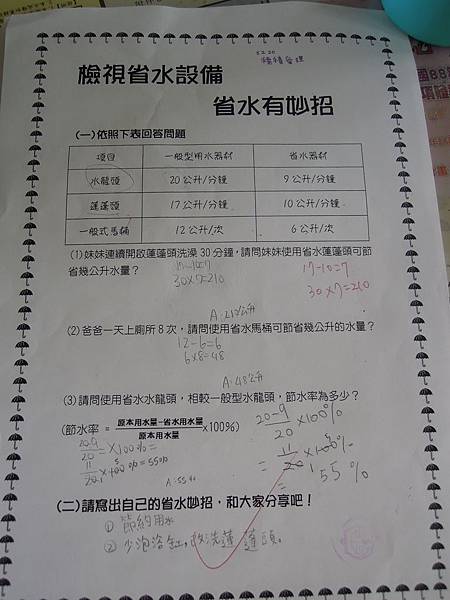 檢視省水設備
省水有妙招
(一)依照下表回答問題
項目 一般型用水器材 省水器材
水龍頭 20公升/分鐘 9公升/分鐘
蓮蓬頭 17公升/分鐘 10公升/分鐘
一般式馬桶 12公升/次 6公升/次
(1)妹妹連續開啟蓮蓬頭洗澡30分鐘,請問妹妹使用省水蓮蓬頭可節
省幾公升水量?
17-10=7
30×7=210
17-10=7
30×7=210
A:210公升
(2)爸爸一天上廁所8次,請問使用省水馬桶可節省幾公升的水量?
12-6=6
6×8=48
A:48公升
(3)請問使用省水水龍頭,相較一般型水龍頭,節水率為多少?
(節水率 = 原本用水量-省水用水量/原本用水量 x100%)
20-9/20 ×100%=
11/20 ×100%=55%
A:55%
20-9/20 ×100%
= 11/20 ×100%
= 55%
(二)請寫出自己的省水妙招,和大家分享吧!
① 節約用水
② 少泡浴缸,改洗蓮蓬頭。